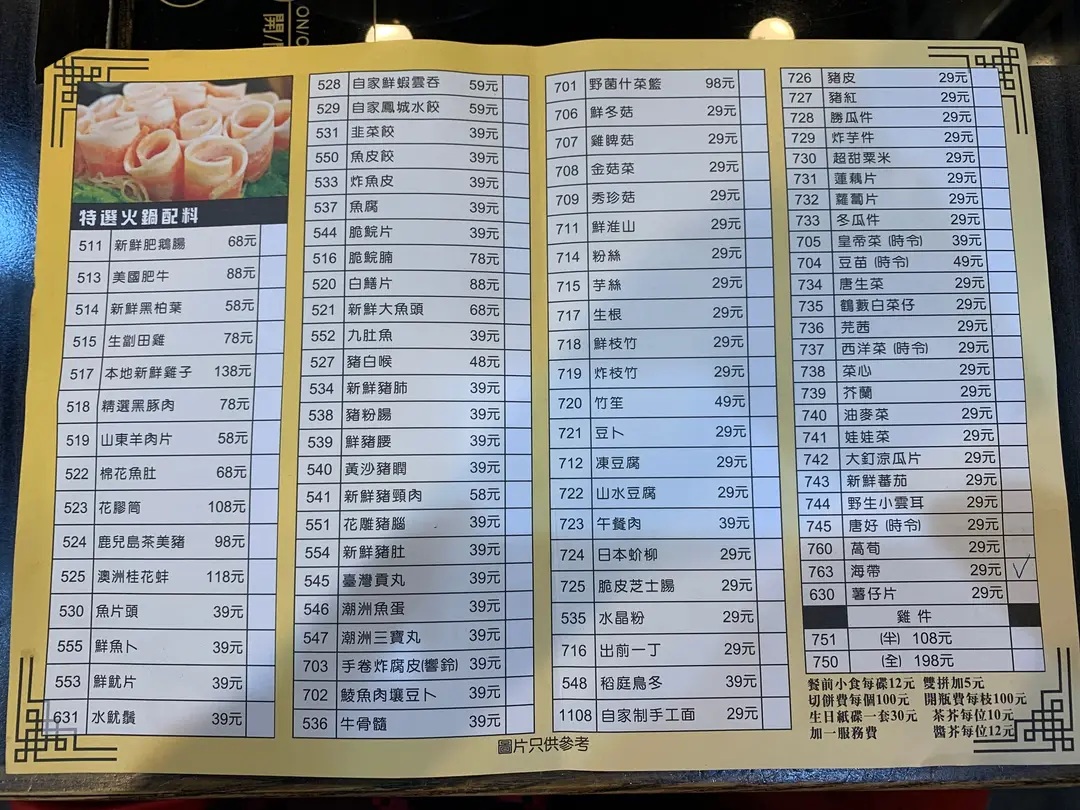 ON/O
開/
特選火鍋配料
511 新鮮肥鵝腸 68元
513 美國肥牛 88元
514 新鮮黑柏葉 58元
515 生劏田雞 78元
517 本地新鮮雞子 138元
518 精選黑豚肉 78元
519 山東羊肉片 58元
522 棉花魚肚 68元
523 花膠筒 108元
524 鹿兒島茶美豬 98元
525 澳洲桂花蚌 118元
530 魚片頭 39元
555 鮮魚卜 39元
553 鮮魷片 39元
631 水魷鬚 39元
528 自家鮮蝦雲吞 59元
529 自家鳳城水餃 59元
531 韭菜餃 39元
550 魚皮餃 39元
533 炸魚皮 39元
537 魚腐 39元
544 脆鯇片 39元
516 脆鯇腩 78元
520 白鱔片 88元
521 新鮮大魚頭 68元
552 九肚魚 39元
527 豬白喉 48元
534 新鮮豬肺 39元
538 豬粉腸 39元
539 鮮豬腰 39元
540 黃沙豬膶 39元
541 新鮮豬頸肉 58元
551 花雕豬腦 39元
554 新鮮豬肚 39元
545 臺灣貢丸 39元
546 潮洲魚蛋 39元
547 潮洲三寶丸 39元
703 手卷炸腐皮(響鈴) 39元
702 鯪魚肉壤豆卜 39元
536 牛骨髓 39元
701 野菌什菜籃 98元
706 鮮冬菇 29元
707 雞髀菇 29元
708 金菇菜 29元
709 秀珍菇 29元
711 鮮淮山 29元
714 粉絲 29元
715 芋絲 29元
717 生根 29元
718 鮮枝竹 29元
719 炸枝竹 29元
720 竹笙 49元
721 豆卜 29元
712 凍豆腐 29元
722 山水豆腐 29元
723 午餐肉 39元
724 日本蚧柳 29元
725 脆皮芝士腸 29元
535 水晶粉 29元
716 出前一丁 29元
548 稻庭烏冬 39元
1108 自家制手工面 29元
726 豬皮 29元
727 豬紅 29元
728 勝瓜件 29元
729 炸芋件 29元
730 超甜粟米 29元
731 蓮藕片 29元
732 蘿蔔片 29元
733 冬瓜件 29元
705 皇帝菜 (時令) 39元
704 豆苗 (時令) 49元
734 唐生菜 29元
735 鶴藪白菜仔 29元
736 芫茜 29元
737 西洋菜 (時令) 29元
738 菜心 29元
739 芥蘭 29元
740 油麥菜 29元
741 娃娃菜 29元
742 大釘涼瓜片 29元
743 新鮮蕃茄 29元
744 野生小雲耳 29元
745 唐好 (時令) 29元
760 萵荀 29元
763 海帶 29元
630 薯仔片 29元
雞件
751 (半) 108元
750 (全) 198元
餐前小食每碟12元 雙拼加5元
切餅費每個100元 開瓶費每枝100元
生日紙碟一套30元 茶芥每位10元
加一服務費 醬芥每位12元
圖片只供參考